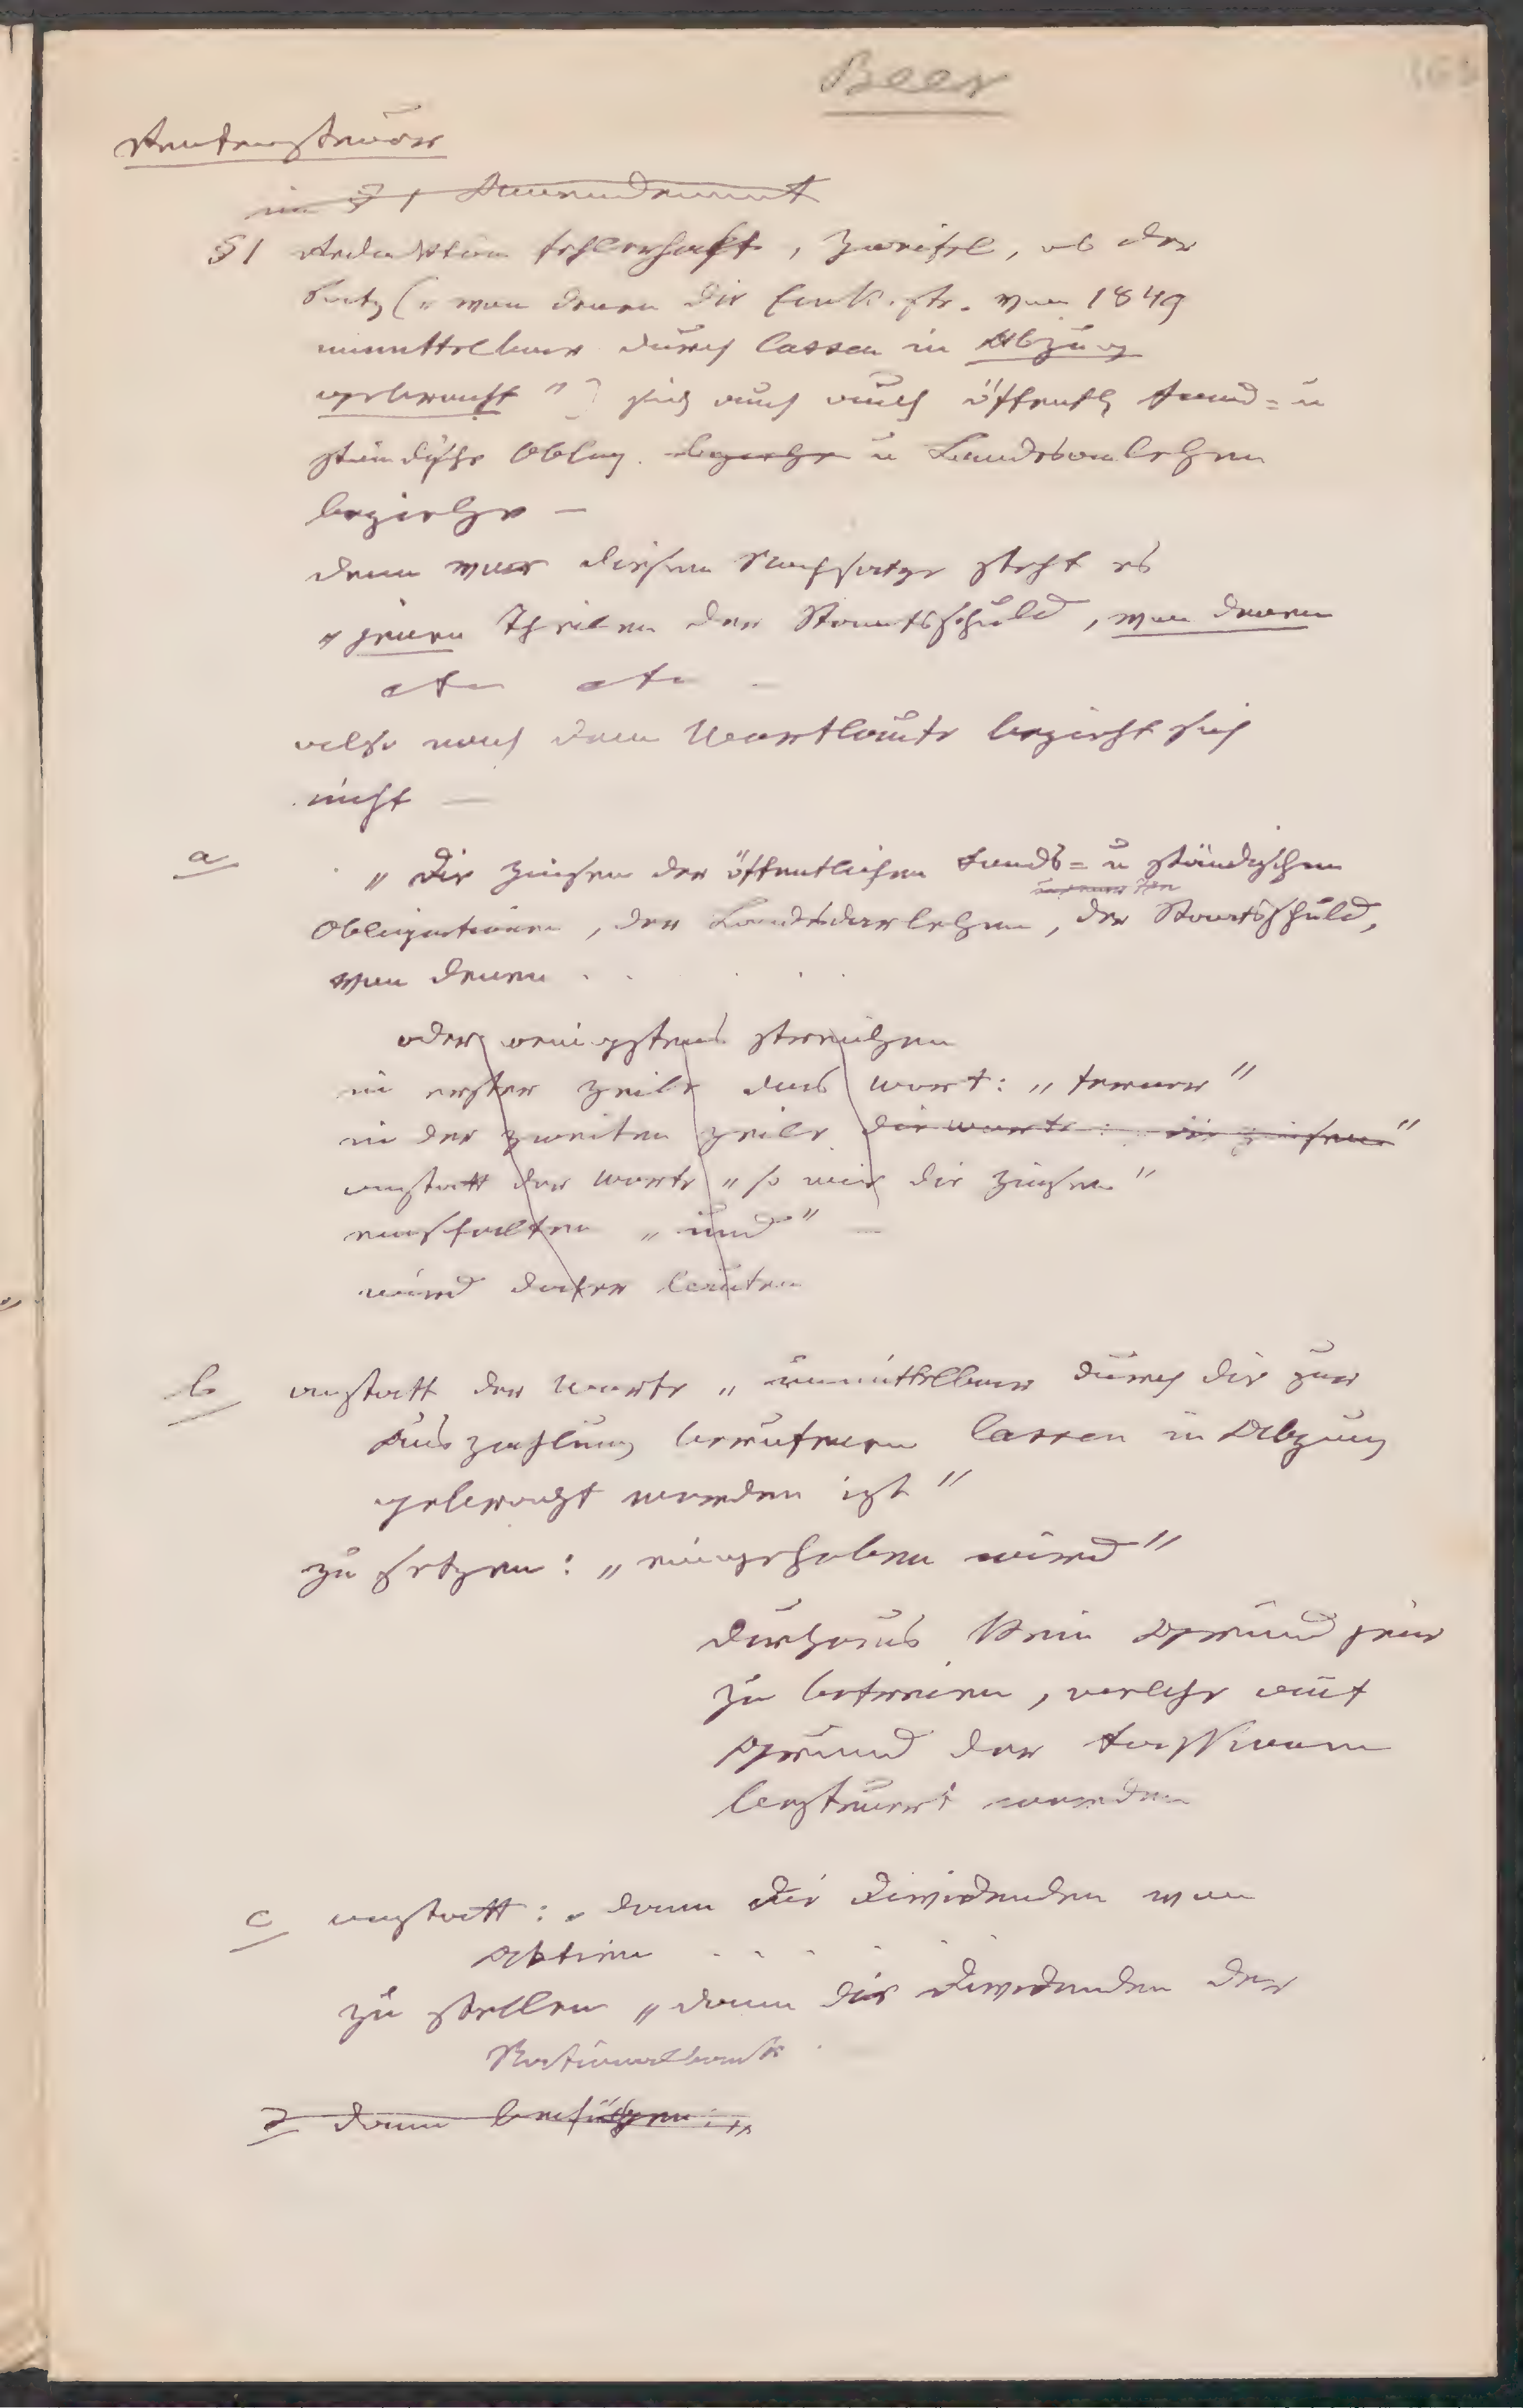 Beer
163
Rentensteuer
im § 1 Amendement
§ 1 Redaktion fehlerhaft, Zweifel, ob der
Satz („von denen die Eink. str. vom 1849
unmittelbar durch Cassen in Abzug
gebracht") sich auch auf öffentl Fond= u
ständische Oblig. beziehe u Landesanlehen
beziehe —
denn vor diesem Nachsatze steht es
„jenen Theilen der Staatsschuld, von denen
etc etc —
also nach dem Wortlaute bezieht sich
nicht —
a „Die Zinsen der öffentlichen Fonds= u ständischen
Obligationen, der Landesdarlehen, der Staatsschuld,
von denen . . . .
oder wenigstens streichen
in erster Zeile das Wort: „ferner"
in der zweiten Zeile die Worte: die Zinsen"
anstatt der Worte „so wie die Zinsen"
einschalten „und" —
wird daher lauten
b anstatt der Worte „unmittelbar durch die zur
Auszahlung berufenen Cassen in Abzug
gebracht worden ist"
zu setzen: „eingehoben wird"
durchaus kein Grund jene
zu befreien, welche auf
Grund der Fassionen
besteuert werden
c anstatt: „dann die Dividenden von
Aktien . . . . . .
zu stellen „dann die Dividenden der
Nationalbank.
d dann beifügen: „